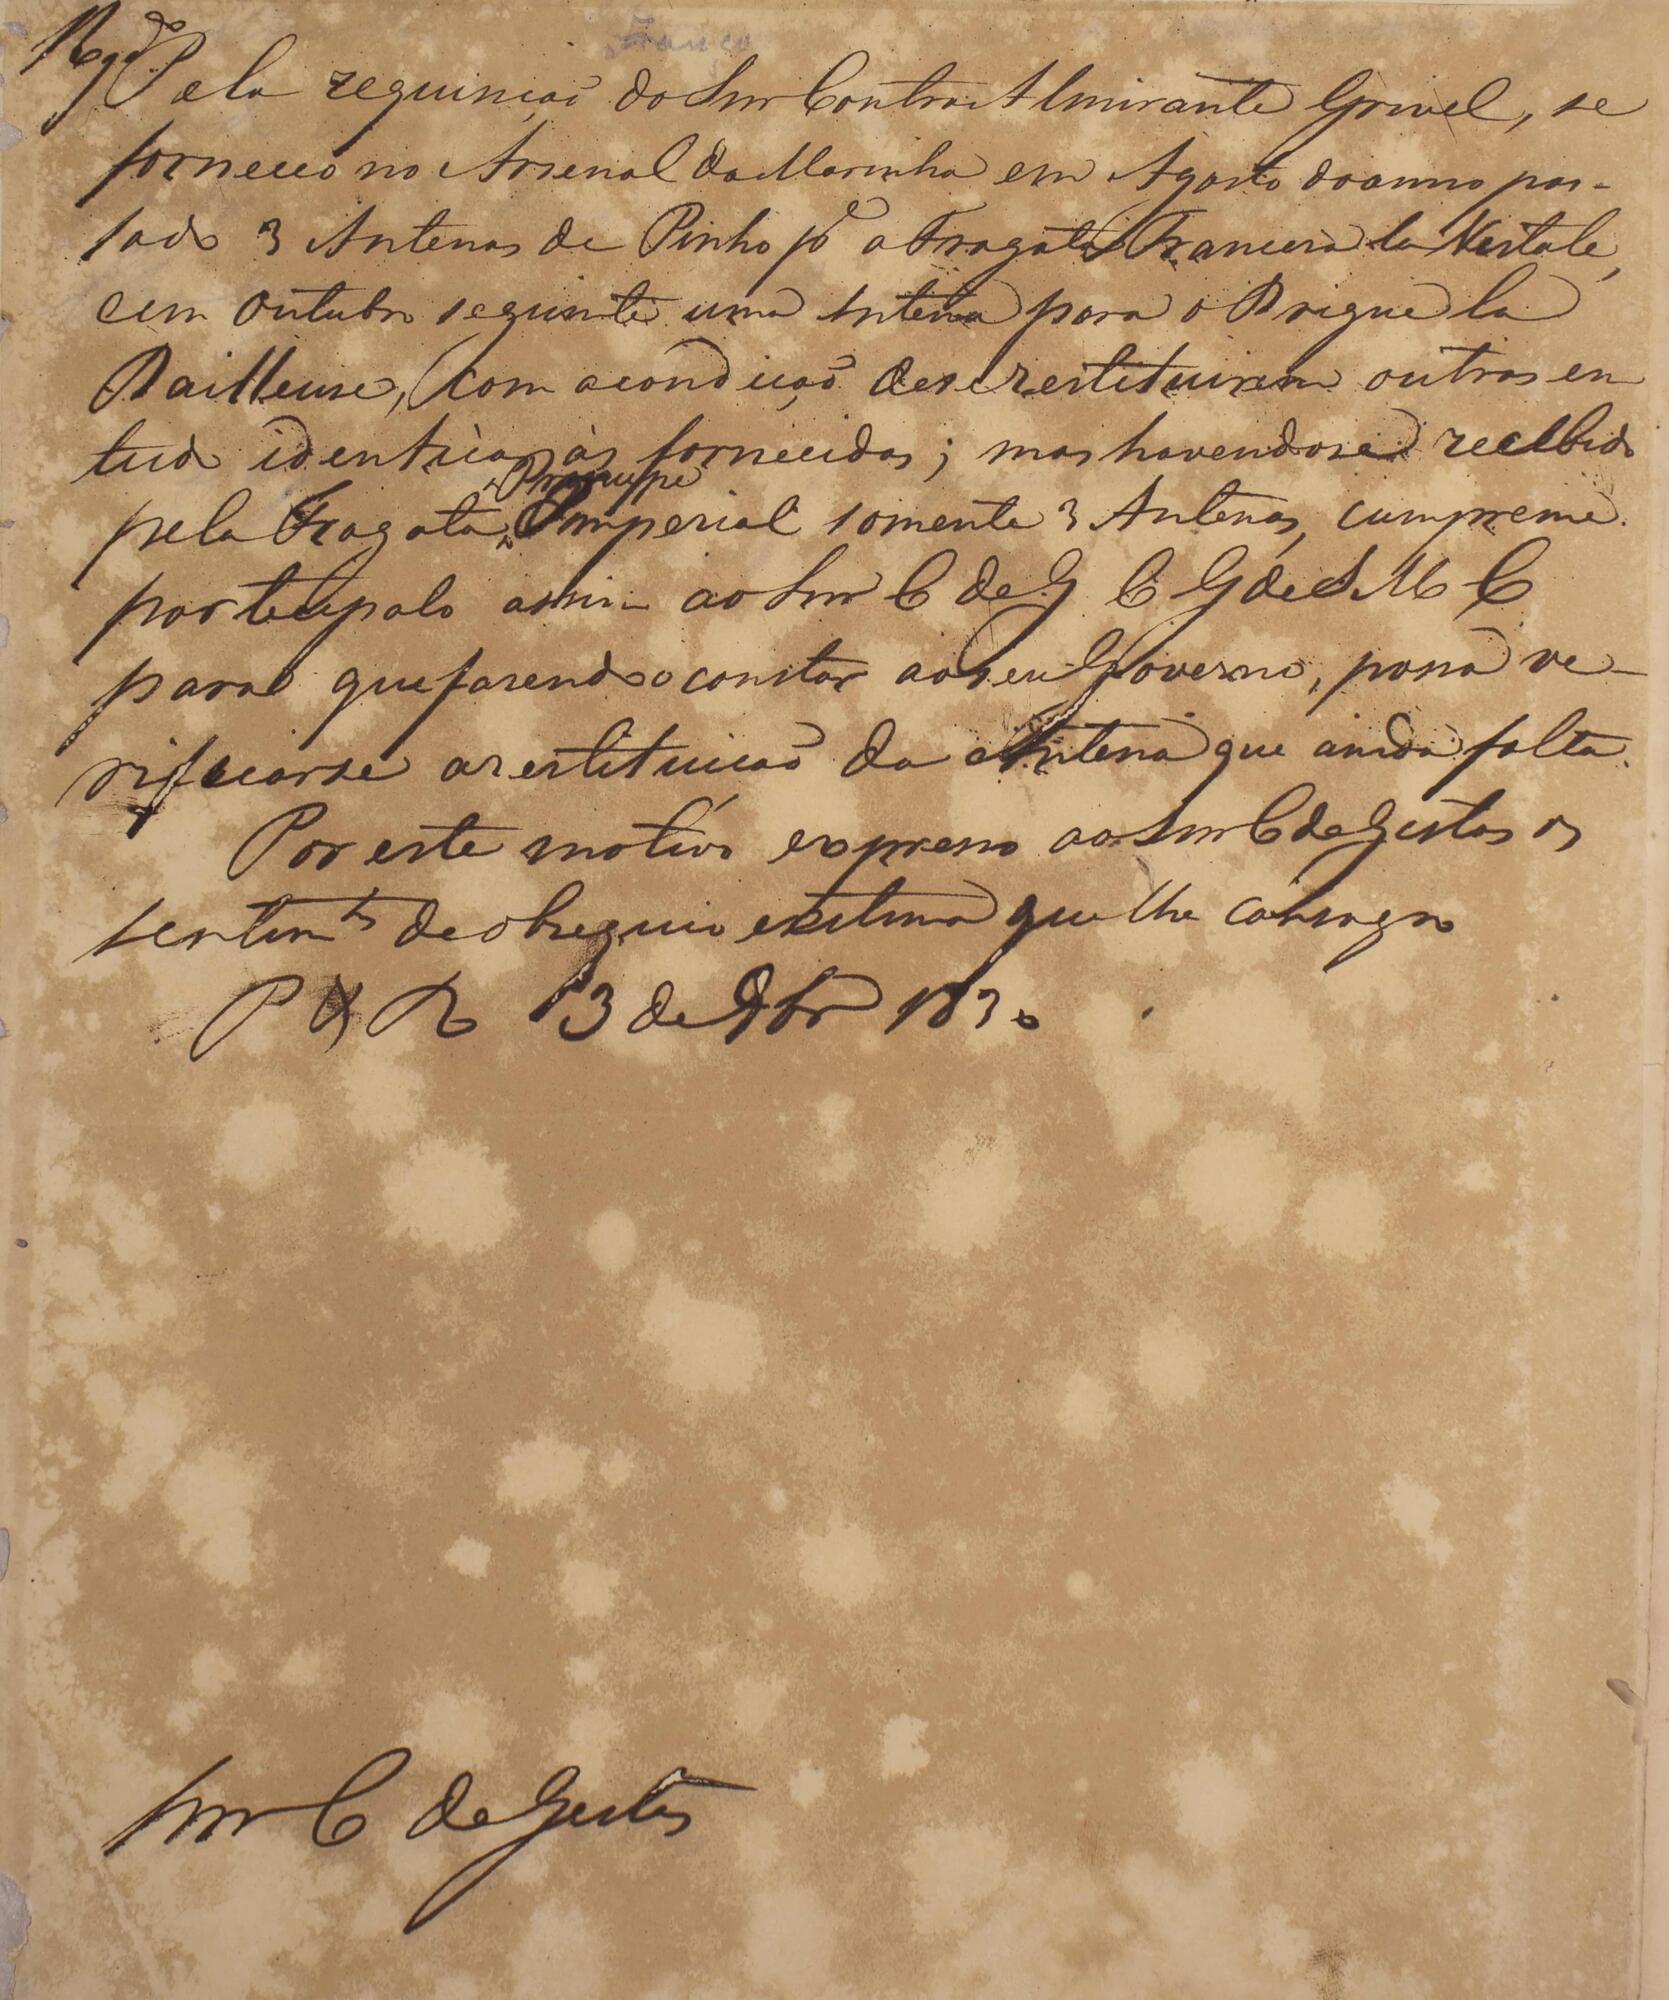 Rg.do França
Pela requisição do Snr Contra Almirante Grivel, se
forneceo no Arsenal da Marinha em Agosto do anno pas-
sado 3 Antenas de Pinho pa a Fragata Franceza la Vestale,
e em Outubro seguinte uma Antena para o Brigue la
Railleuse, com a condição de se restituirem outras em
tudo identicas às fornecidas; mas havendose recebido
pela Fragata Principe Imperial somente 3 Antenas, cumpreme
participalo assim ao Snr C de G E G de S M C
para que fazendo o constar ao seu Governo, possa ve-
rificarse a restituição da Antena que ainda falta.
Por este motivo expresso ao Snr C de Gestas os
sentimtos de obsequio e estima que lhe consagro
P R 13 de 1830
Snr C de Gestas